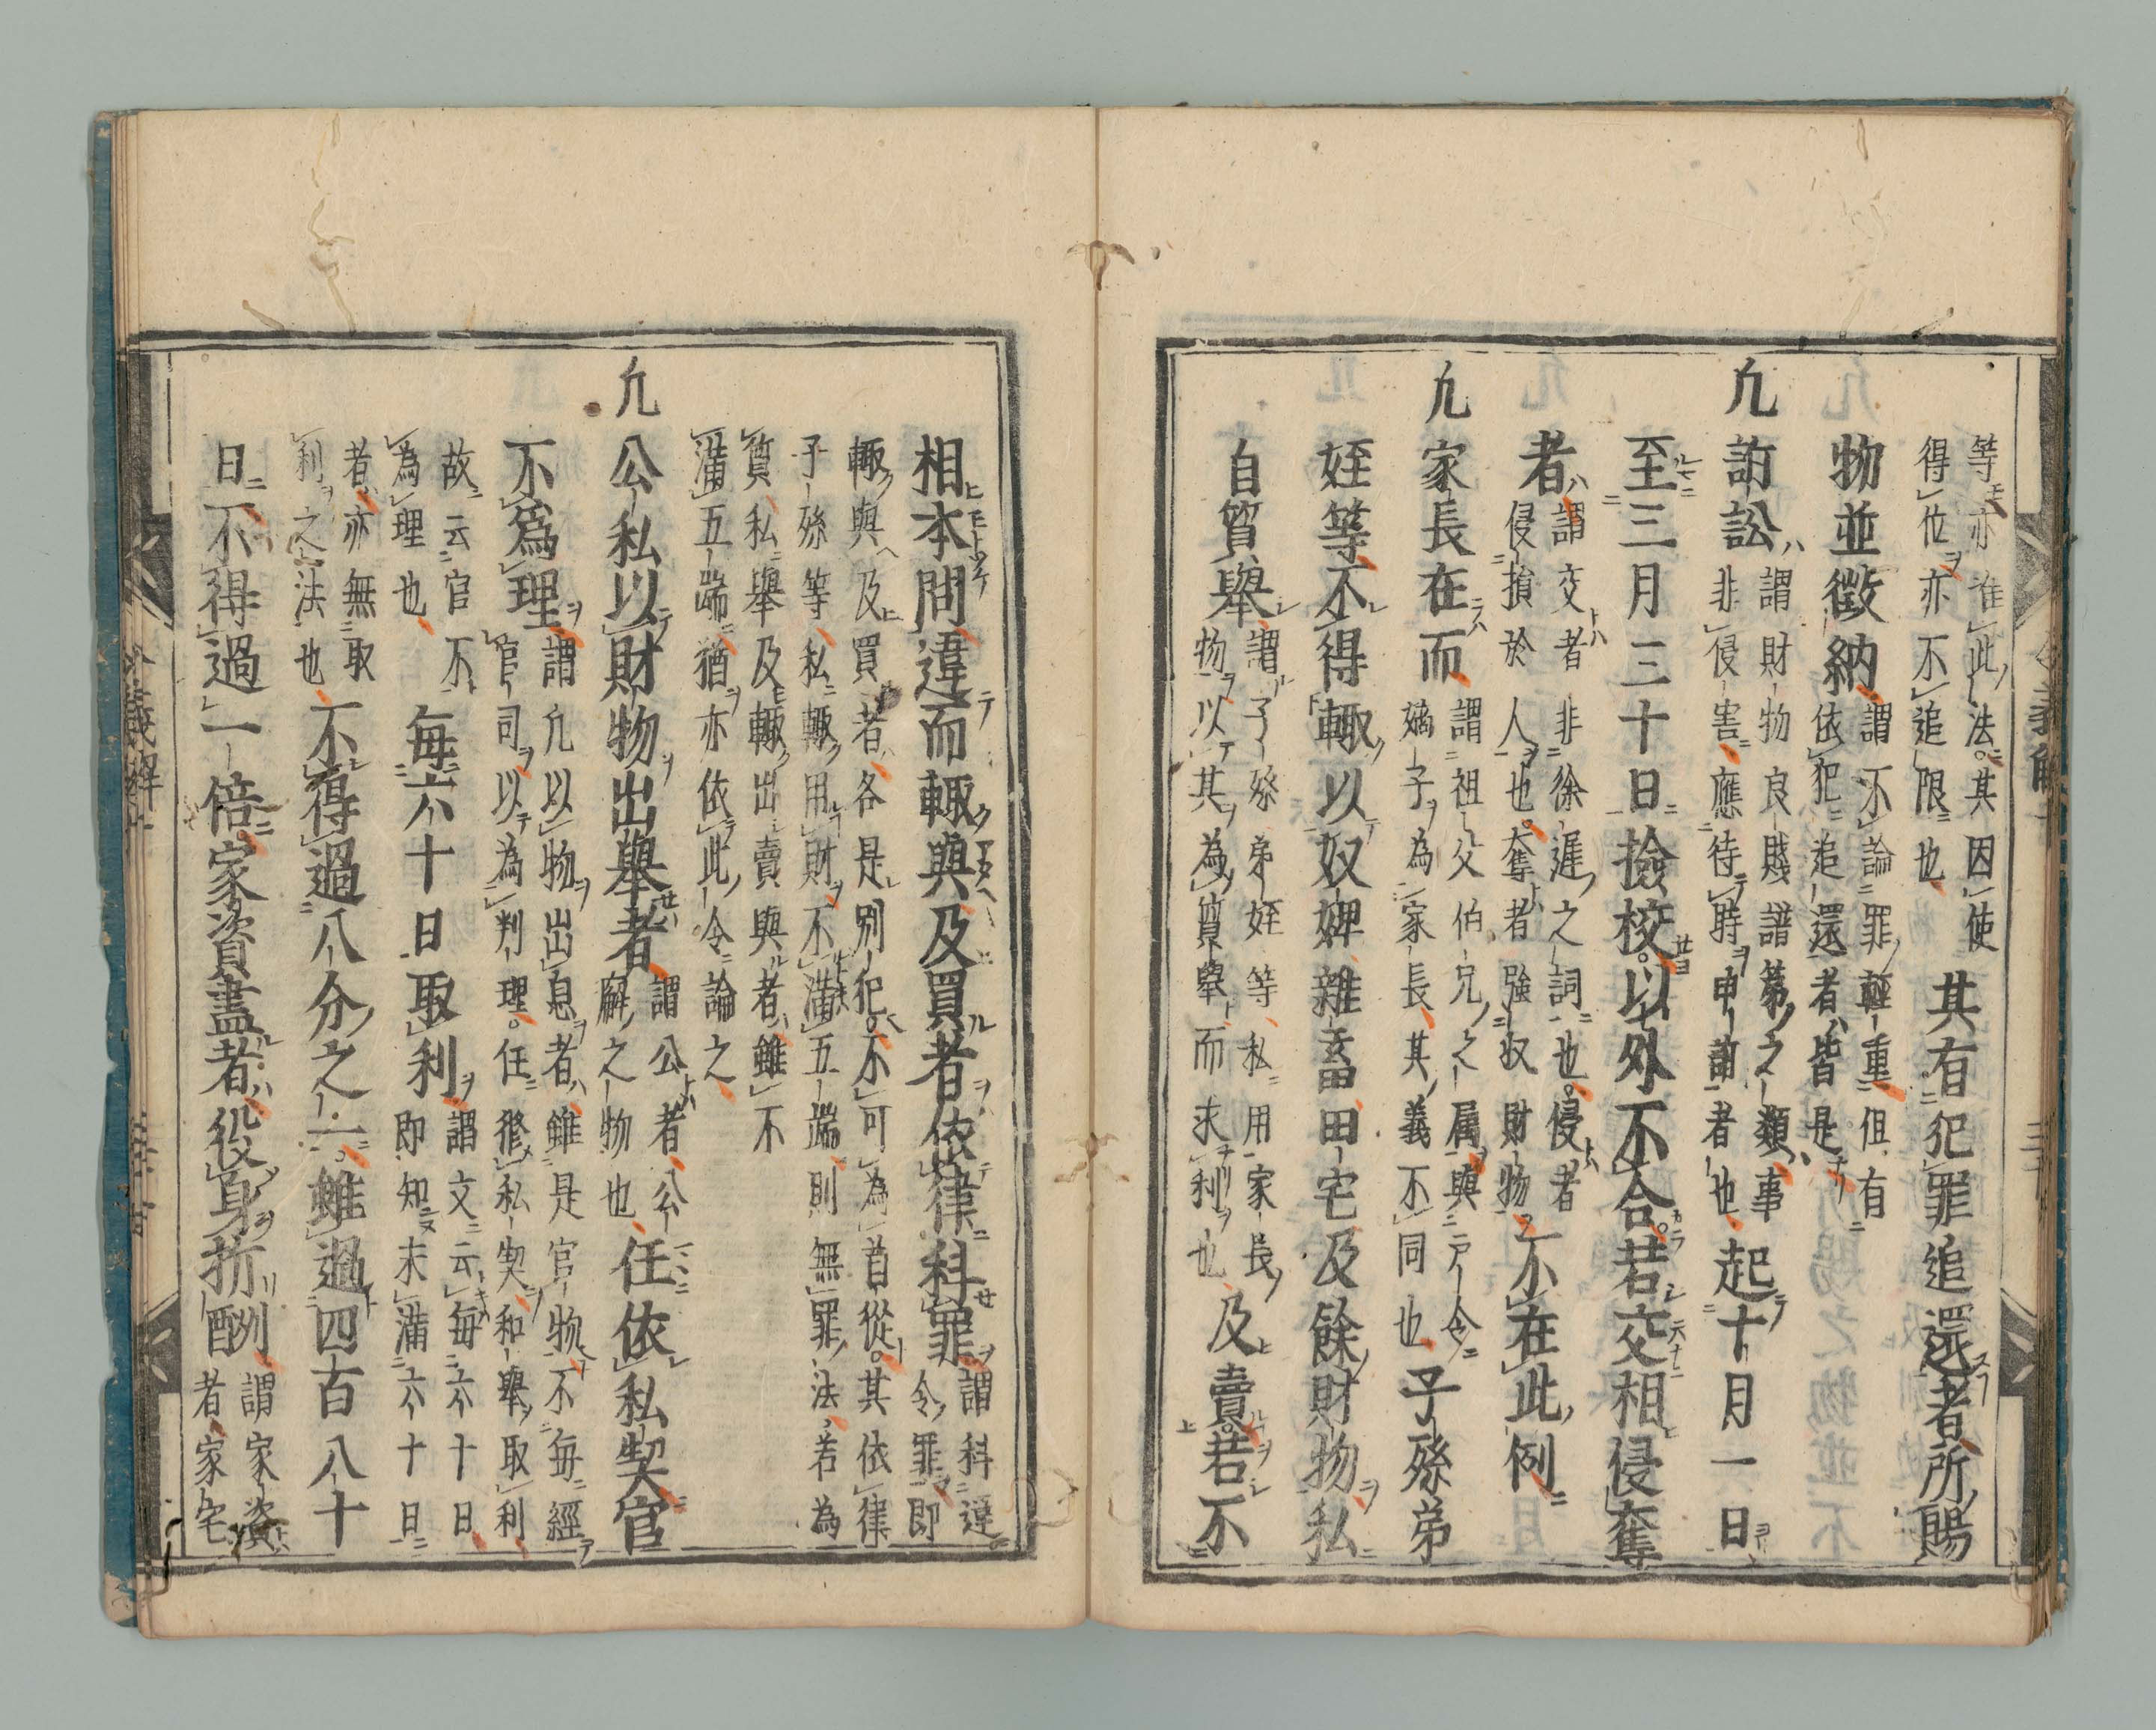 等亦准此法其因使
得位亦不追限也
其有犯罪追還者所賜
物並徵納
謂不論罪輕重但有
依犯追還者皆是
凢訴訟
謂財物良賤譜第之類事
非侵害應待時申訴者也
起十月一日
至三月三十日撿校以外不合若交相侵奪
者
謂交者非徐遲之詞也侵者
侵損於人也奪者強収財物
不在此例
凢家長在而
謂祖父伯兄之属與戸令
嫡子為家長其義不同也
子孫弟
姪等不得輙以奴婢雜畜田宅及餘財物私
自質舉
謂子孫弟姪等私用家長
物以其為質舉而求利也
及賣若不
相本問違而輙與及買者依律科罪
謂科違
令罪即
輙與及買者各是別犯不可為首從其依律
子孫等私輙用財不滿五端則無罪法若為
質私舉及輙出賣與者雖不
滿五端猶亦依此令論之
凢公私以財物出舉者
謂公者公
廨之物也
任依私契官
不爲理
謂凢以物出息者雖是官物不毎經
官司以為判理任修私契和舉取利
故云官不
為理也
毎六十日取利
謂文云毎六十日
即知未滿六十日
者亦無取
利之法也
不得過八分之一雖過四百八十
日不得過一倍家資盡者役身折酬
謂家資
者家宅